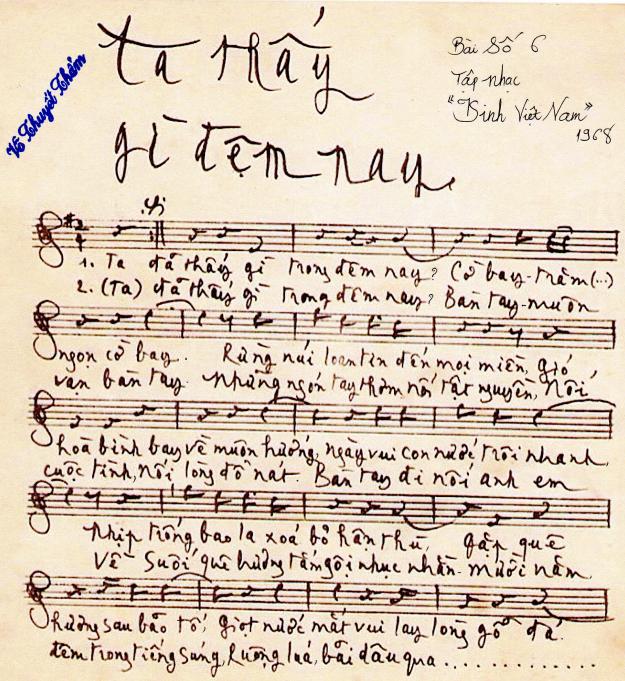 Ta thấy
gì đêm nay
Võ Thuyết Thảm
Bài Số 6
Tập nhạc
"Kinh Việt Nam"
1968
1. Ta đã thấy gì trong đêm nay? Cờ bay - trăm (...)
2. (Ta) đã thấy gì trong đêm nay? Bàn tay - muôn
ngọn cờ bay. Rừng núi loan tin đến mọi miền, gió
vạn bàn tay. Những ngón tay thơm nối tật nguyền, Nối
hoà bình bay về muôn hướng, ngày vui con nước trôi nhanh,
cuộc tình, nối lòng đổ nát. Bàn tay đi nối anh em
nhịp trống bao la xoá bỏ hận thù, gặp quê
Về suối quê hương tắm gội nhục nhằn. mười năm
hương sau bão tố; giọt nước mắt vui lay lòng gỗ đá.
đêm trong tiếng súng, Ruộng lúa, bãi dâu qua ............